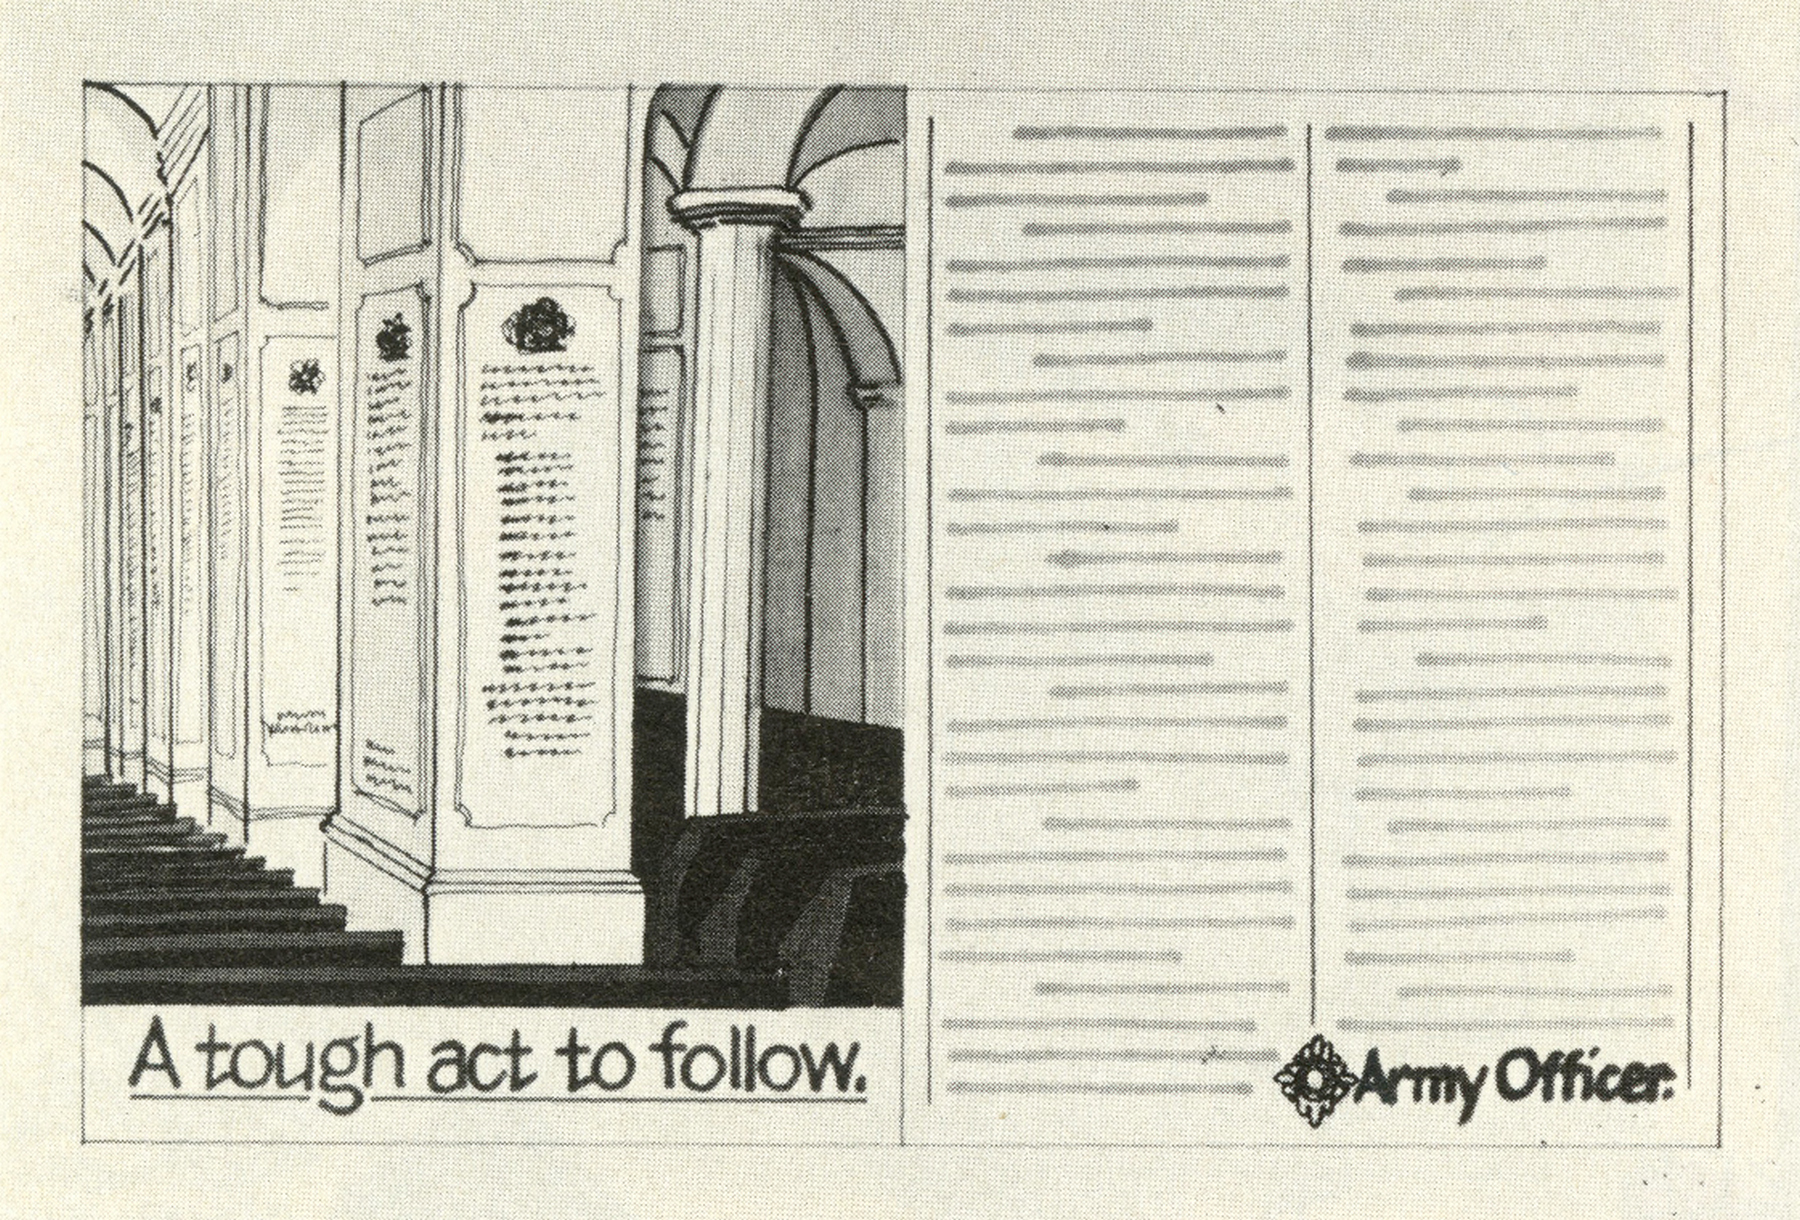 A tough act to follow.
Army Officer.